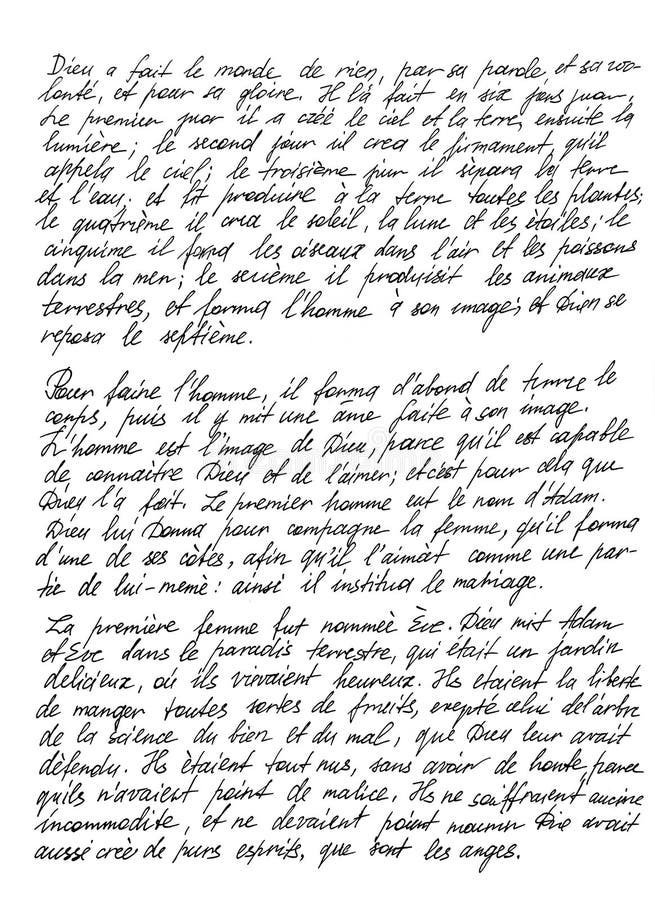 Dieu a fait le monde de rien, par sa parole, et sa vo-
lonté, et pour sa gloire. Il l'a fait en six jons juar.
Le premier jnor il a créé le ciel et la terre, ensuite la
lumière; le second jour iil crea le firmament, qu'il
appela le ciel; le troisième jiur il sèpara la terre
et l'eau. et fit produire à la terre toutes les plantes;
le quatrième il crea le soleil, la lune et les étoiles; le
cinquime il forma les oiseaux dans l'air et les poissons
dans la men; le sexième il produisit les animaux
terrestres, et forma l'homme à son image; et Dien se
reposa le septième.
Pour faine l'homme, il forma d'abord de le
conps, puis il y mit une âme faite à son image.
L'homme est l'image de Dieu, parce qu'il est capable
de connaitre Dieu et de l'aimer; et c'est pour cela que
Dieu l'a fait. Le premier homme eut le nom d'Adam.
Dieu lui Donna pour compagne la femme, qu'il forma
d'une de ses côtés, afin qu'il l'aimàt comme une par-
tie de lui-memè: ainsi il institua le mariage.
La première femme fut nommèe Ève. Dieu mit Adam
et Eve dans le paradis terrestre, qui était un jardin
delicieux, où ils vivaient heureux. Ils etaient la liberte
de manger toutes sortes de fruits, exepté celui del'arbre
de la science du bien et du mal, que Dieu leur avait
dèfendu. Ils ètaient tout nus, sans avoir de honte, parce
quils n'avaient point de malice. Ils ne souffraient aucine
incommodite, et ne devaient point mourir Die avait
aussé creè de purs esprits, que sont les anges.